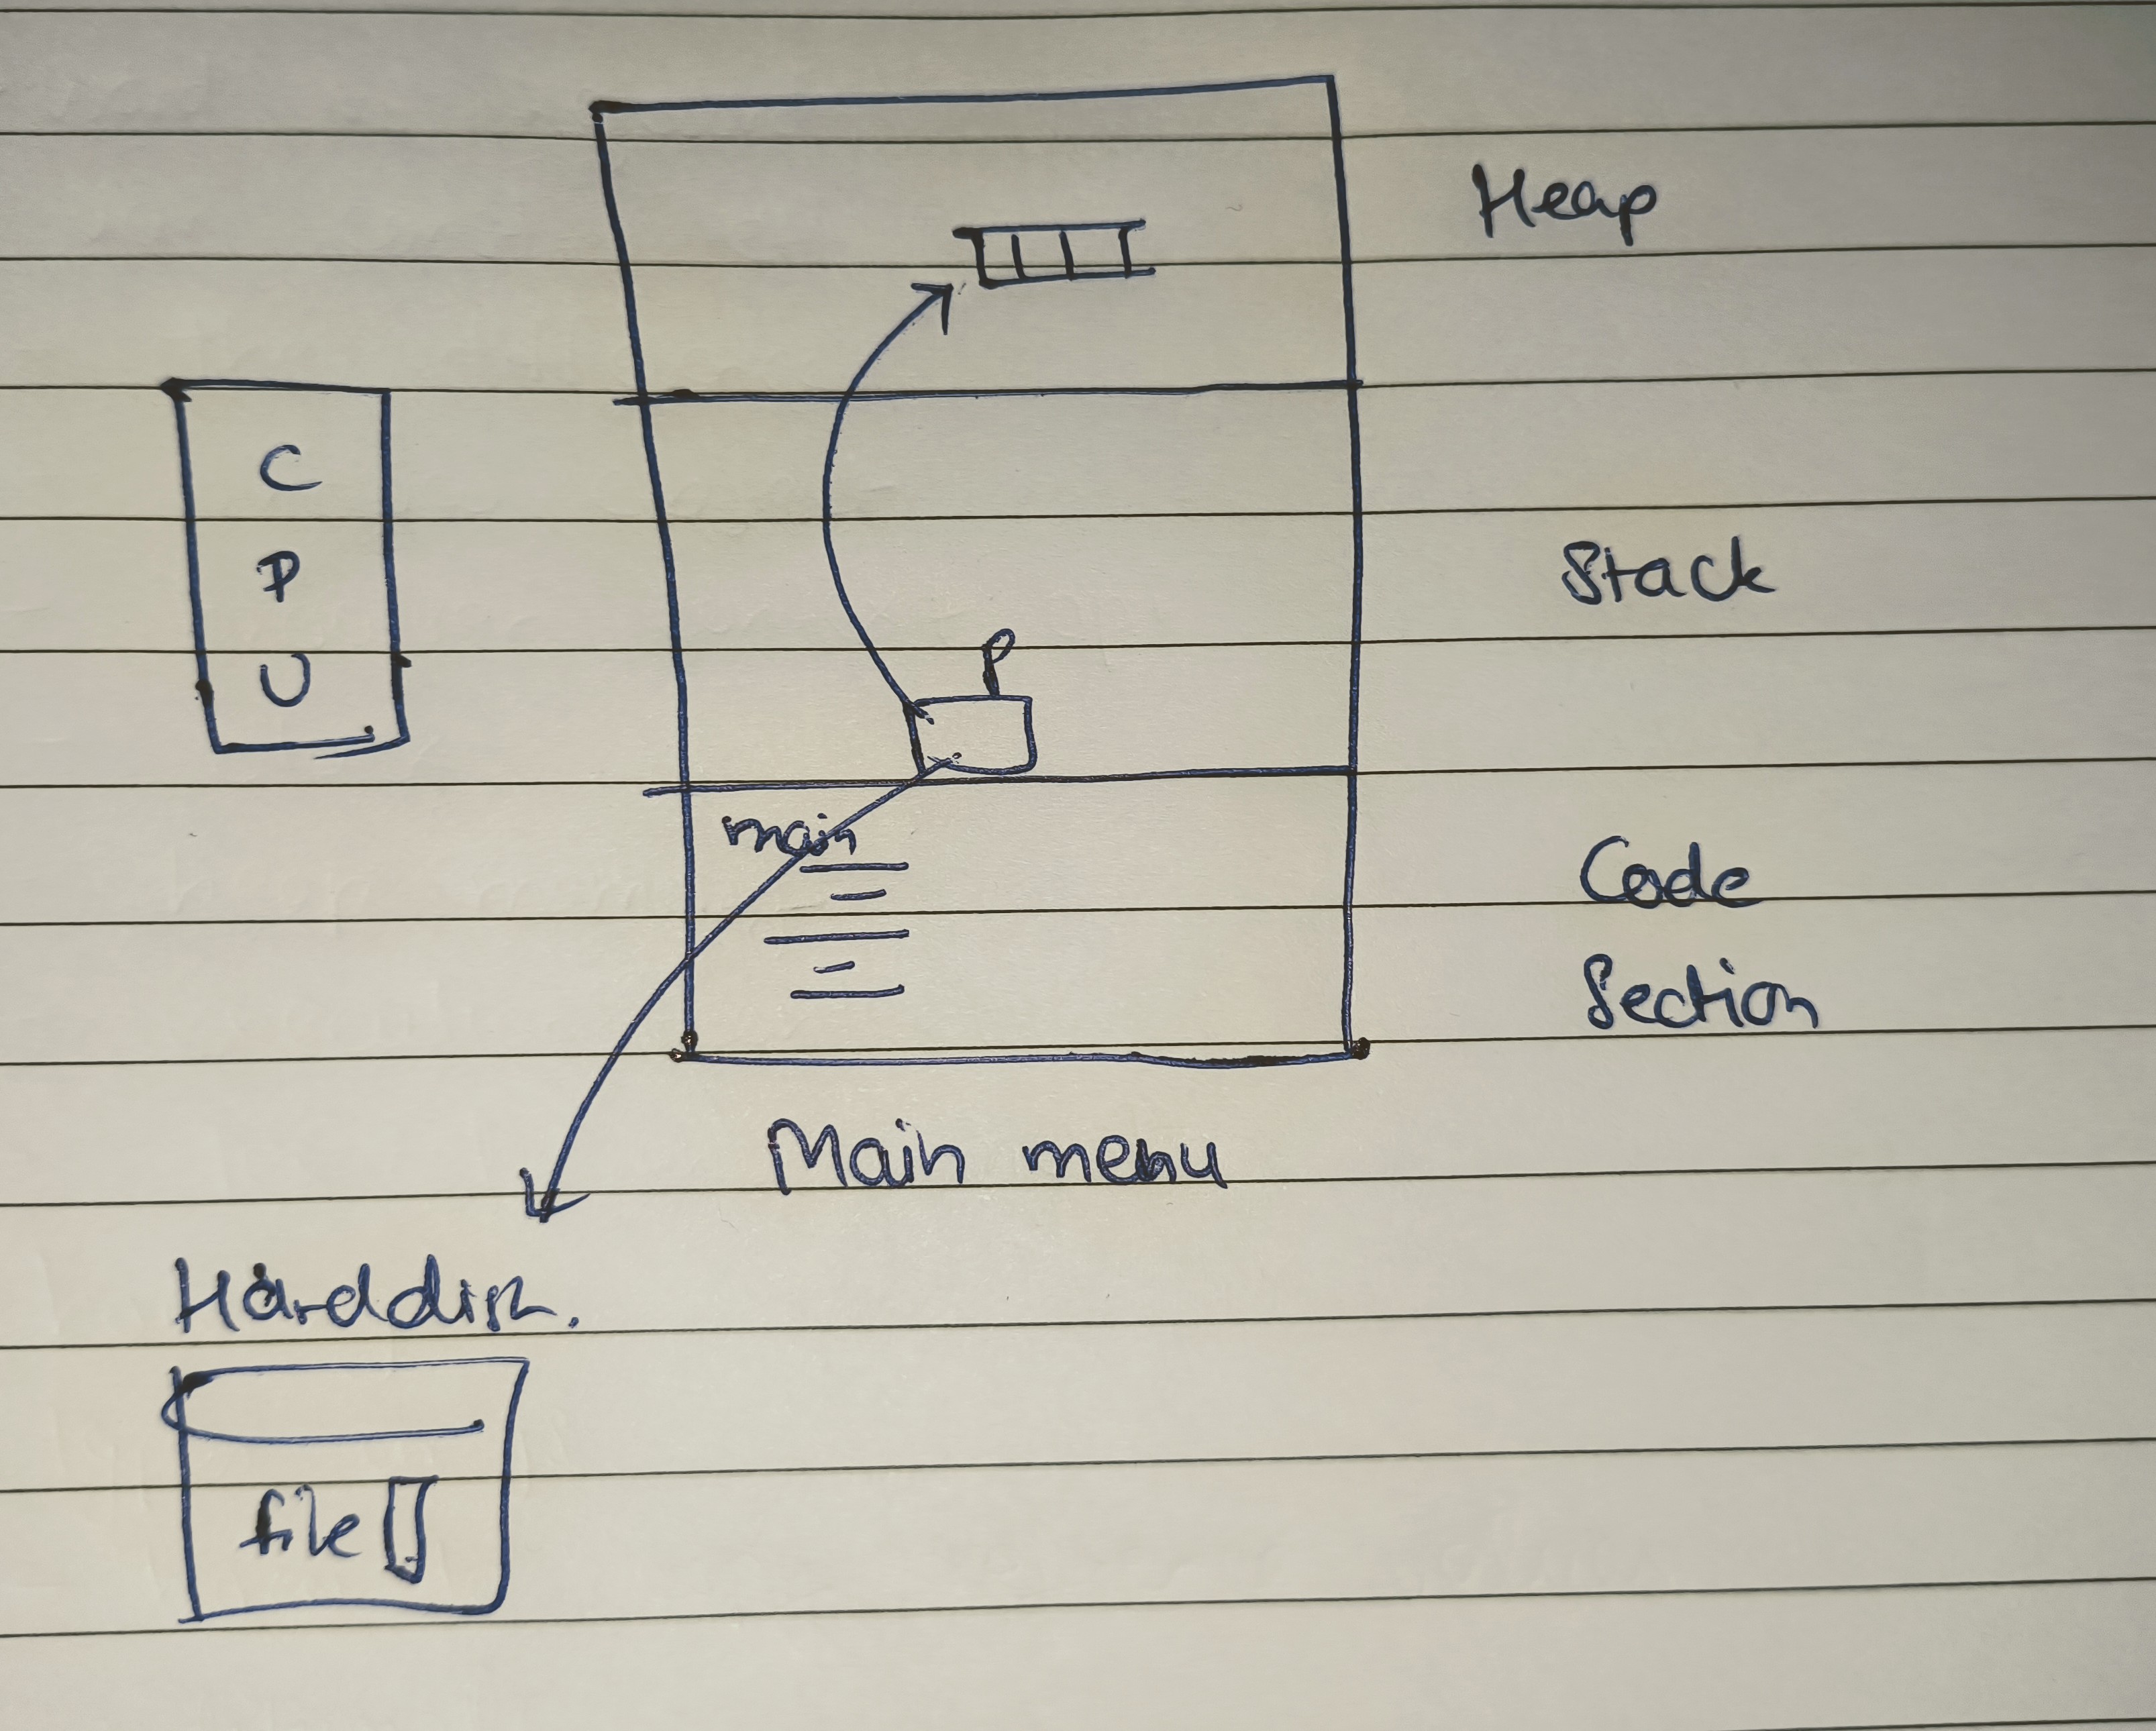 Heap
C
P
U
Stack
P
main
Code
Section
Main menu
Harddisk.
file